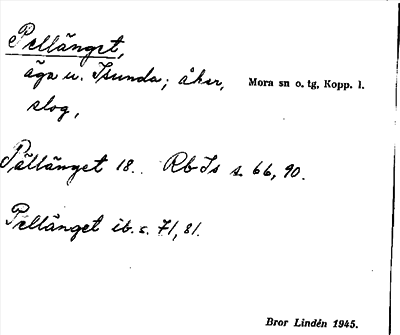 Pellänget,
äga u. Isunda; åker, Mora sn o. tg, Kopp. l.
slog,
Pällänget 18.. Rb Is s. 66, 90.
Pellänget ib. s. 71, 81.
Bror Lindén 1945.